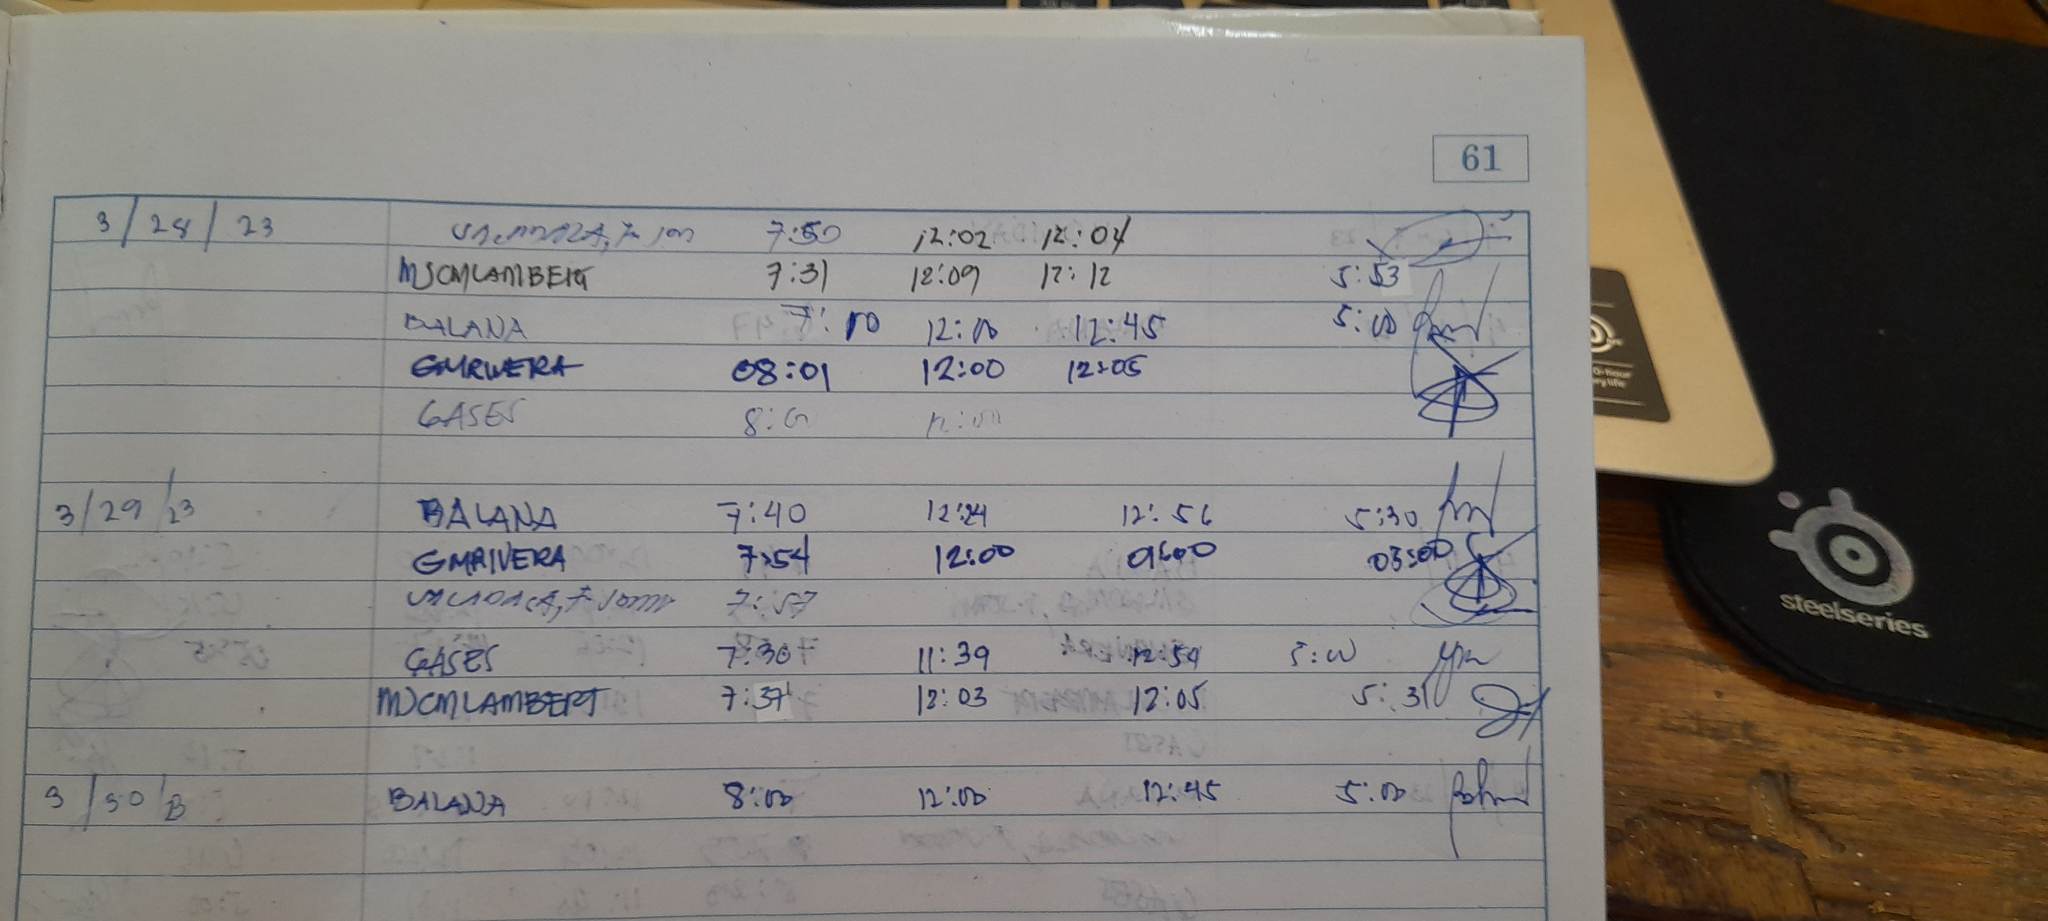 61
3/28/23 7:50 12:02 12:04
MJCMLAMBERT 7:31 12:09 12:12 5:53
BALANA 12:00 12:45 5:00
GMRIVERA 08:01 12:00 12:05
GASES
3/29/23 BALANA 7:40 12:24 12:56 5:30
GMRIVERA 7:54 12:00 01:00 03:00
7:57
GASES 7:30 11:39 12:54 5:00
MJCMLAMBERT 7:37 12:03 12:05 5:31
3/30/23 BALANA 8:00 12:00 12:45 5:00
steelseries